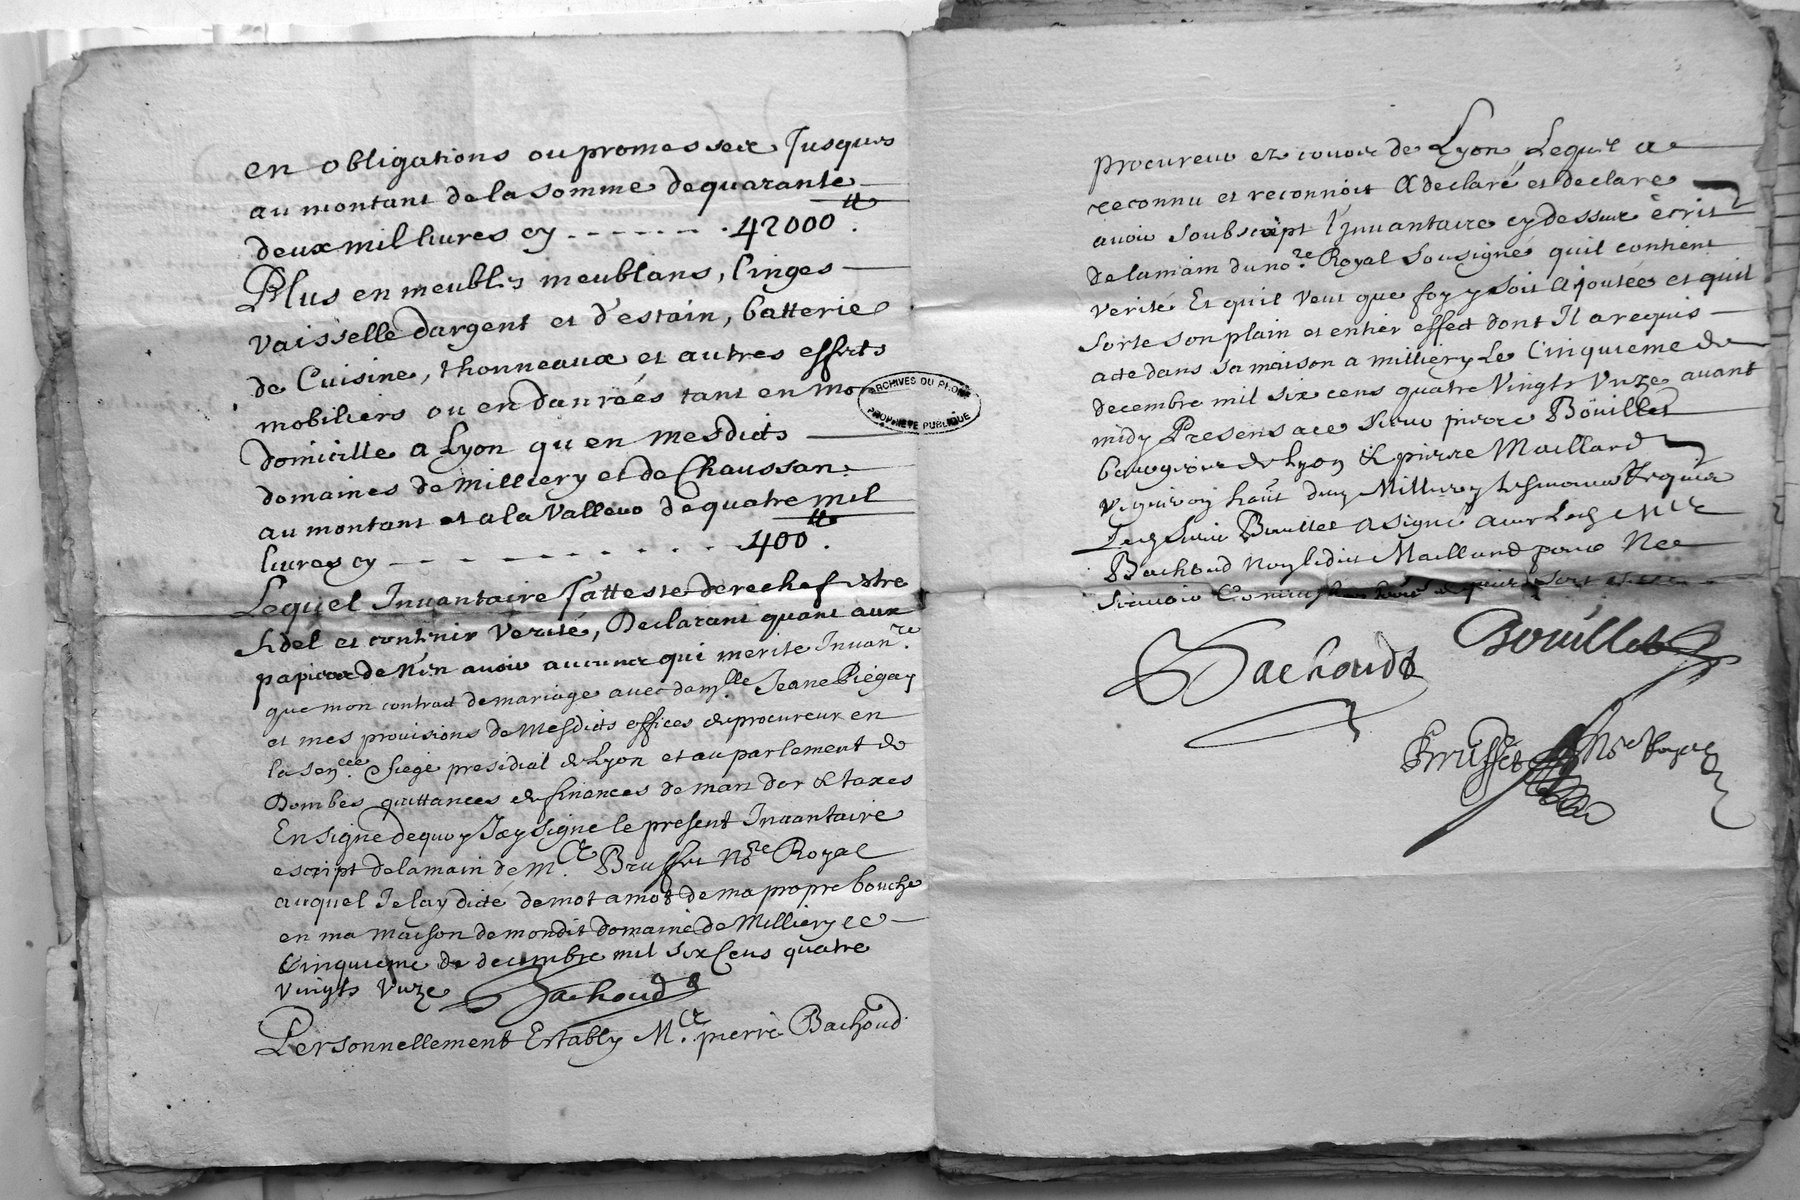 en obligations ou promesses Jusques
au montant de la somme de quarante
deux mil livres cy - - - - - - - 42000 ₶.
Plus en meubles meublans, linges
vaisselle dargent et d'estain, batterie
de Cuisine, thonneaux et autres effects
mobiliers ou en danrées tant en mo
domicille a Lyon qu'en mesdicts
domaines de Milliery et de Chaussan
au montant et a la valleur de quatre mil
livres cy - - - - - - - - - 400 ₶.
Lequel Invantaire J'atteste derechef estre
fidel et contenir verité, Declarant quant aux
papiers de n'en avoir aucuns qui merite Invan.re
que mon contract de mariage avec dam.lle Jeane Piegay
et mes provisions de mesdicts offices de procureur en
la sen.cee Siege presidial de Lyon et au parlement de
Dombes quittances de finances de marc dor & taxes
En signe de quoy Jay signe le present Invantaire
escript de la main de M.e Brusset No.re Royal
auquel Je lay dicté de mot a mot de ma propre bouche
en ma maison de mondit domaine de Milliery le
Cinquieme de decembre mil six Cens quatre
vingts unze Bachoud
Personnellement Estably M.e pierre Bachoud
ARCHIVES DU RHÔNE
PROPRIÉTÉ PUBLIQUE
procureur ez cours de Lyon, Lequel a
reconnu et reconnoit A declaré et declare
avoir soubscript l'Invantaire cy dessus écrit
de la main du no.re Royal sousigné quil contient
verité Et quil veut que foy y soit ajoutée et quil
sorte son plain et entier effect dont Il a requis
acte dans sa maison a milliery Le Cinquieme de
decembre mil six cens quatre vingts unze avant
midy Presens a ce Sieur pierre Boüillet
bourgeois de Lyon & pierre Maillard
vigneron haut dud Milliery tesmoins Requis
Led Sieur Bouillet a signé avec led M.e
Bachoud Non ledict Maillard pour ne
Bachoud
Bouillet
Brusset No.re Royal